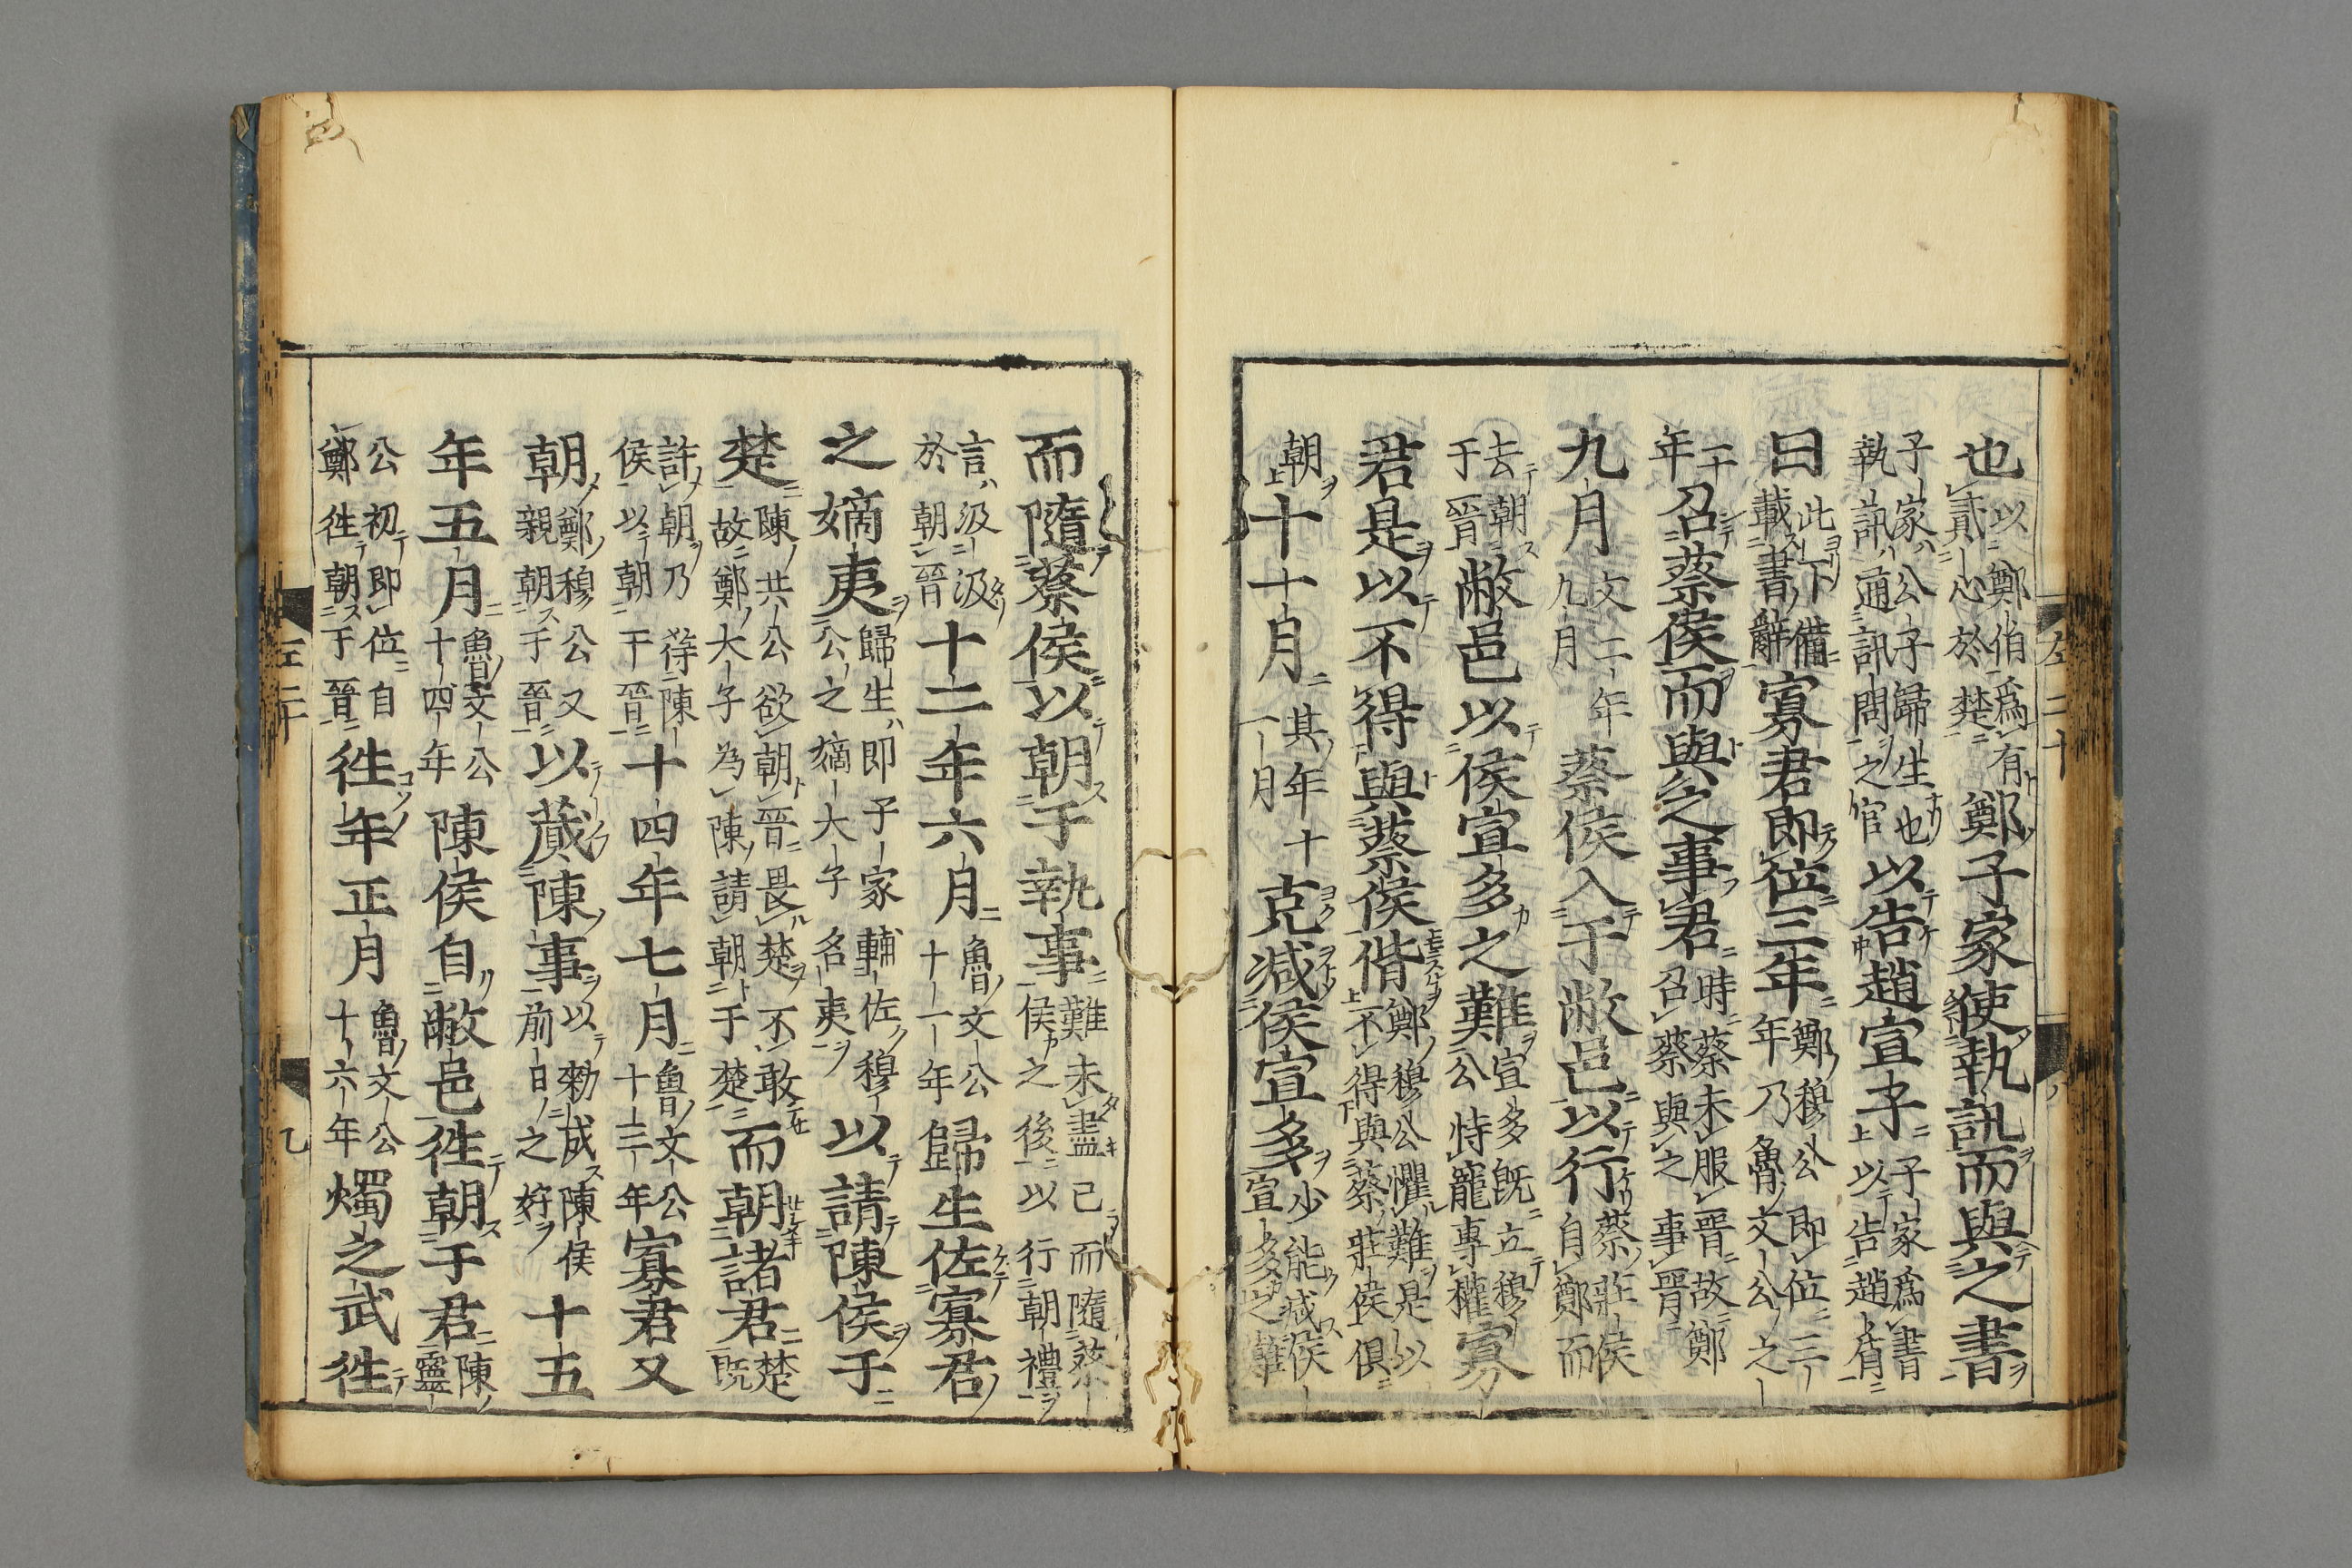 也以鄭伯爲有貳心於楚鄭子家使執訊而與之書
子家公子歸生也執訊通訊問之官以告趙宣子子家爲書以告趙盾
曰此下備載書辭寡君即位三年鄭穆公即位三年乃魯文公之
二年召蔡侯而與之事君時蔡未服晉故鄭召蔡與之事晉
九月文二年九月蔡侯入于敝邑以行蔡莊侯自鄭而
去朝于晉敝邑以侯宣多之難宣多既立穆公恃寵專權寡
君是以不得與蔡侯偕鄭穆公懼難是以不得與蔡莊侯俱
朝十一月其年十一月克減侯宣多少能減侯宣多之難
而隨蔡侯以朝于執事難未盡已而隨蔡侯之後以行朝禮
言汲汲於朝晉十二年六月魯文公十一年歸生佐寡君
之嫡夷歸生即子家輔佐穆公之嫡大子名夷以請陳侯于
楚陳共公欲朝晉畏楚不敢故鄭大子為陳請朝于楚而朝諸君楚既
許朝乃侍陳侯以朝于晉十四年七月魯文公十三年寡君又
朝鄭穆公又親朝于晉以蕆陳事以勑成陳侯前日之好十五
年五月魯文公十四年陳侯自敝邑往朝于君陳靈
公初即位自鄭往朝于晉往年正月魯文公十六年燭之武往
左二十
左二十